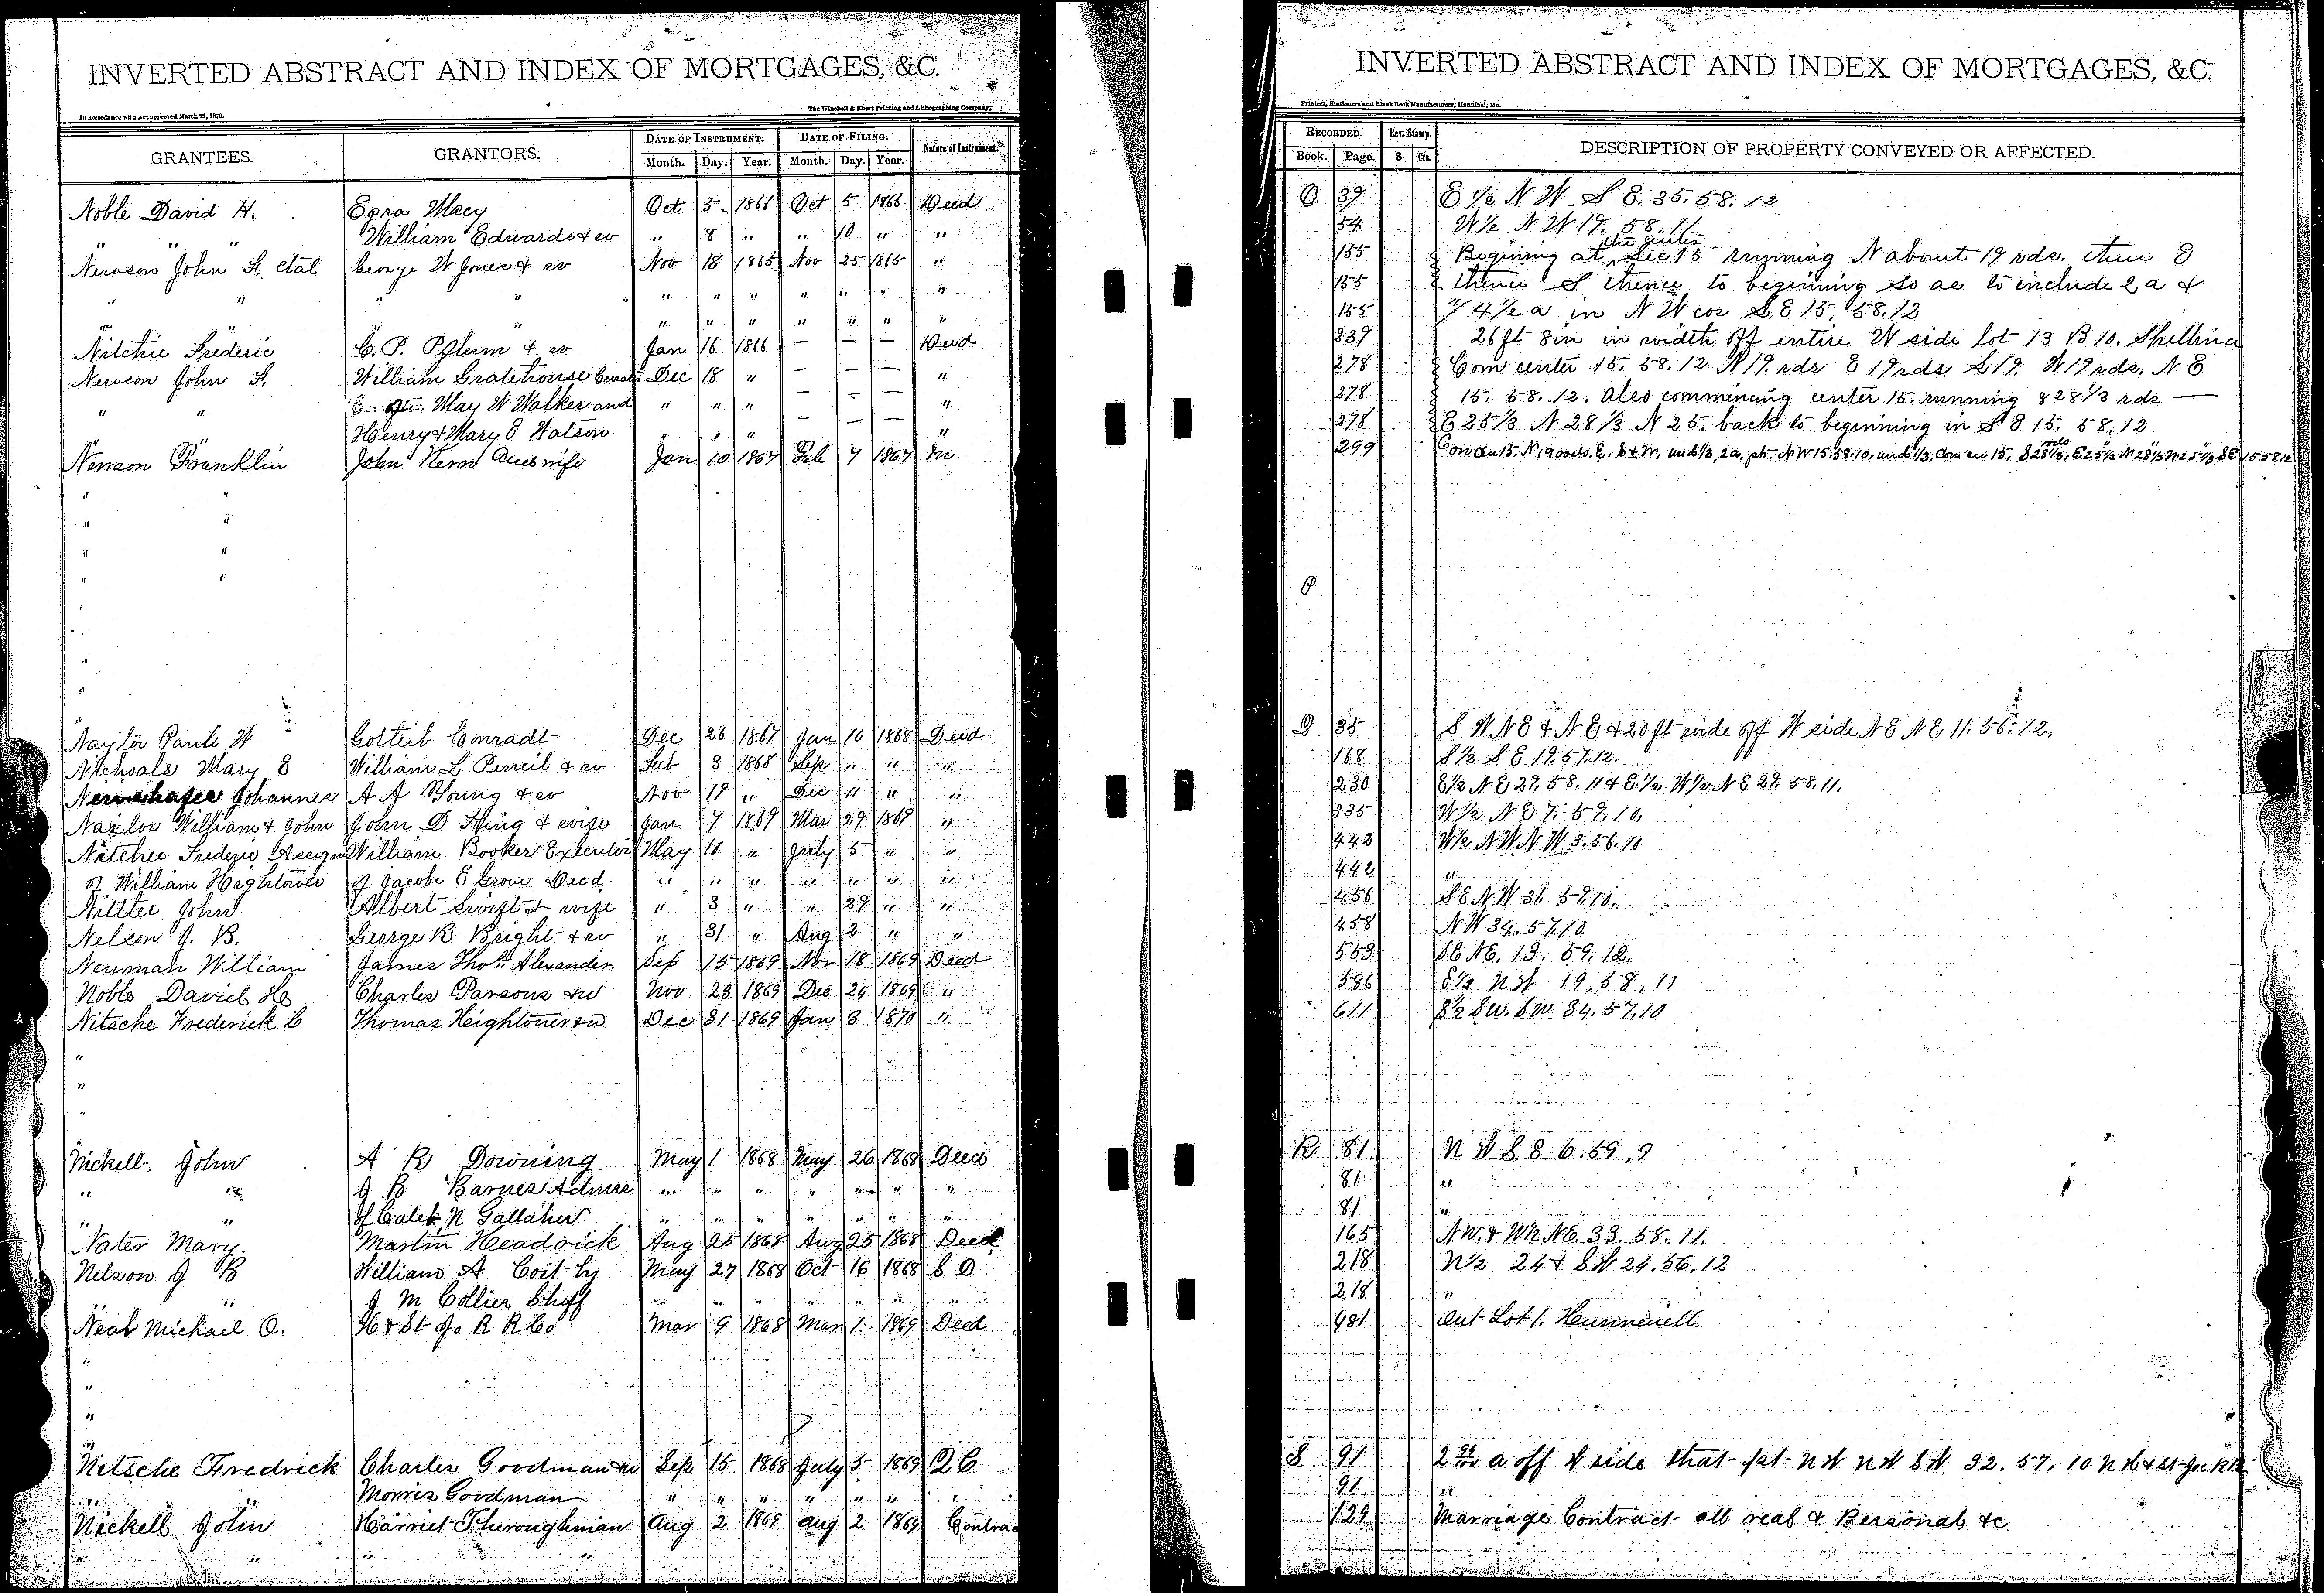 INVERTED ABSTRACT AND INDEX OF MORTGAGES, &C.
In accordance with Act approved March 25, 1870.
The Winchell & Ebert Printing and Lithographing Company,
GRANTEES. GRANTORS. DATE OF INSTRUMENT. DATE OF FILING. Nature of Instrument.
Month. Day. Year. Month. Day. Year.
Noble David H. Ezra Macy Oct 5 1866 Oct 5 1866 Deed
" " " William Edwards & w " 8 " " 10 " "
Newson John S. etal George W Jones & w Nov 18 1865 Nov 25 1865 "
" " " " " " " " " " "
" " " " " " " " "
Nitchie Frederic C. P. Pflum & w Jan 16 1866 — — — Deed
Newson John S. William Gratehouse Dec 18 " — — — "
" " May W Walker and " " " — — — "
Henry & Mary E Watson " " " — — "
Newson Franklin John Kern and wife Jan 10 1867 Feb 7 1867
" "
" "
" "
" "
Naylor Paul W Gotteib Conradt Dec 26 1867 Jan 10 1868 Deed
Nichoals Mary E William L Pencil & w Feb 3 1868 Sep " " "
Johannes A A Young & w Nov 19 " Dec 11 " "
Naylor William & John John D King & wife Jan 7 1869 Mar 29 1869 "
Nitchee Frederic Assignee William Booker Executor May 10 " July 5 " "
of William Hightower of Jacobe E Grove Deed. " " " " " " "
Nittter John Albert Swift & wife " 3 " " 29 " "
Nelson J. B. George R Bright & w " 31 " Aug 2 " "
Neuman William James Thos Alexander Sep 15 1869 Nov 18 1869 Deed
Noble David H Charles Parsons & w Nov 23 1869 Dec 24 1869 "
Nitsche Frederick C Thomas Heightower & w Dec 31 1869 Jan 3 1870 "
"
"
"
Nickell John A R Downing May 1 1868 May 26 1868 Deed
" " J B Barnes Admire " " " " " " "
" " of Caleb N Gallaher " " " " " " "
Nater Mary. Martin Headrick Aug 25 1868 Aug 25 1868 Deed
Nelson J B William A Coit by May 27 1868 Oct 16 1868 S D
" J M Collier Shff " " " " " "
Neal Michael O. H & St Jo R R Co. Mar 9 1868 Mar 1 1869 Deed
"
"
"
Nitsche Fredrick Charles Goodman & w Sep 15 1868 July 5 1869 Q C
" Morris Goodman " " " " " " "
Nickell John Harriet Thoroughman Aug 2 1869 Aug 2 1869 Contrac
INVERTED ABSTRACT AND INDEX OF MORTGAGES, &C.
Printers, Stationers and Blank Book Manufacturers, Hannibal, Mo.
RECORDED. Rev. Stamp. DESCRIPTION OF PROPERTY CONVEYED OR AFFECTED.
Book. Page. $ Cts.
O 39 E 1/2 N W S E. 35. 58. 12
54 W 1/2 N W 19. 58. 11
the center
155 Begining at Sec 15 running N about 19 rds. then E
155 thence S thence to beginning so as to include 2 a &
155 4 1/2 a in N W cor S E 15. 58. 12
239 26 ft 8 in in width off entire W side lot 13 B 10. Shelbina
278 Com center 15. 58. 12 N 19 rds E 19 rds S 19. W 19 rds. N E
278 15. 58. 12. Also commencing center 15. running S 28 1/3 rds —
278 E 25 1/3 N 28 1/3 N 25. back to beginning in S E 15. 58. 12
299
P
Q 35 S W N E & N E & 20 ft wide off W side N E N E 11. 56. 12.
168 S 1/2 S E 19. 57. 12.
230 E 1/2 N E 27. 58. 11 & E 1/2 W 1/2 N E 27. 58. 11.
335 W 1/2 N E 7. 57. 10.
442 W 1/2 N W N W 3. 56. 10
442 "
456 S E N W 31. 57. 10.
458 N W 34. 57. 10
553 S E N E. 13. 59. 12.
586 E 1/2 N W 19, 58, 11
611 S 1/2 S W. S W 34. 57. 10
R 81 N W S E 6. 59. 9
81 "
81 "
165 N W. & W 1/2 N E. 33. 58. 11.
218 N 1/2 24 & S W 24. 56. 12
218 "
481 Out Lot 1. Hunnewell.
S 91 a off W side that pt N W N W S W 32. 57. 10 N H & St Joe R R
91 "
129 Marriage Contract all real & Personal &c